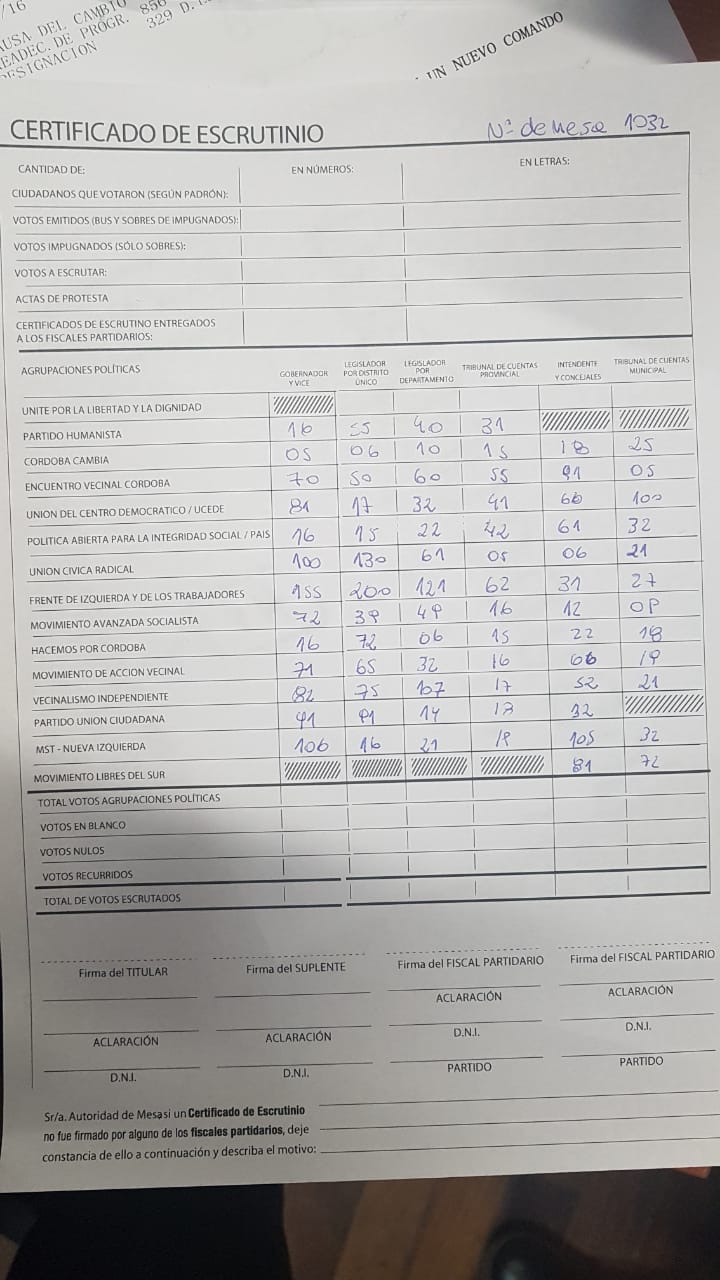 /16
AUSA DEL CAMBIO
READEC. DE PROGR. 856
329 D.
DESIGNACION
UN NUEVO COMANDO
CERTIFICADO DE ESCRUTINIO Nº de mesa 1032
CANTIDAD DE: EN NÚMEROS: EN LETRAS:
CIUDADANOS QUE VOTARON (SEGÚN PADRÓN):
VOTOS EMITIDOS (BUS Y SOBRES DE IMPUGNADOS):
VOTOS IMPUGNADOS (SÓLO SOBRES):
VOTOS A ESCRUTAR:
ACTAS DE PROTESTA
CERTIFICADOS DE ESCRUTINO ENTREGADOS
A LOS FISCALES PARTIDARIOS:
AGRUPACIONES POLÍTICAS GOBERNADOR Y VICE LEGISLADOR POR DISTRITO ÚNICO LEGISLADOR POR DEPARTAMENTO TRIBUNAL DE CUENTAS PROVINCIAL INTENDENTE Y CONCEJALES TRIBUNAL DE CUENTAS MUNICIPAL
UNITE POR LA LIBERTAD Y LA DIGNIDAD
PARTIDO HUMANISTA 16 55 40 31
CORDOBA CAMBIA 05 06 10 15 18 25
ENCUENTRO VECINAL CORDOBA 70 50 60 55 91 05
UNION DEL CENTRO DEMOCRATICO / UCEDE 81 17 32 41 66 100
POLITICA ABIERTA PARA LA INTEGRIDAD SOCIAL / PAIS 16 15 22 42 61 32
UNION CIVICA RADICAL 100 130 61 05 06 21
FRENTE DE IZQUIERDA Y DE LOS TRABAJADORES 155 200 121 62 31 27
MOVIMIENTO AVANZADA SOCIALISTA 72 39 49 16 12 09
HACEMOS POR CORDOBA 16 72 06 15 22 18
MOVIMIENTO DE ACCION VECINAL 71 65 32 16 06 19
VECINALISMO INDEPENDIENTE 82 75 107 17 52 21
PARTIDO UNION CIUDADANA 91 91 14 17 32
MST - NUEVA IZQUIERDA 106 16 21 18 105 32
MOVIMIENTO LIBRES DEL SUR 81 72
TOTAL VOTOS AGRUPACIONES POLÍTICAS
VOTOS EN BLANCO
VOTOS NULOS
VOTOS RECURRIDOS
TOTAL DE VOTOS ESCRUTADOS
Firma del TITULAR Firma del SUPLENTE Firma del FISCAL PARTIDARIO Firma del FISCAL PARTIDARIO
ACLARACIÓN ACLARACIÓN ACLARACIÓN ACLARACIÓN
D.N.I. D.N.I. D.N.I. D.N.I.
PARTIDO PARTIDO
Sr/a. Autoridad de Mesa si un Certificado de Escrutinio
no fue firmado por alguno de los fiscales partidarios, deje
constancia de ello a continuación y describa el motivo: